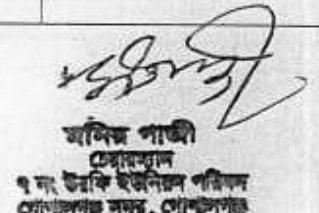 মনির গাজী
চেয়ারম্যান
৭ নং উরফি ইউনিয়ন পরিষদ
গোপালগঞ্জ সদর, গোপালগঞ্জ